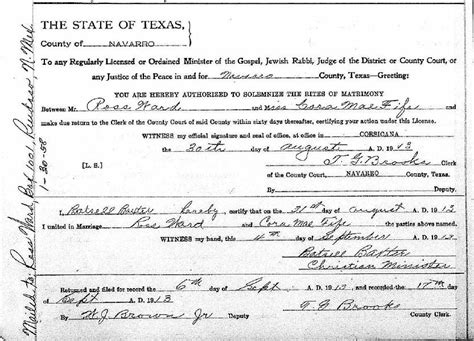 THE STATE OF TEXAS,
County of NAVARRO
To any Regularly Licensed or Ordained Minister of the Gospel, Jewish Rabbi, Judge of the District or County Court, or
any Justice of the Peace in and for County, Texas—Greeting:
YOU ARE HEREBY AUTHORIZED TO SOLEMNIZE THE RITES OF MATRIMONY
Between Mr. Ross Ward and Miss Cora Mae Fife and
make due return to the Clerk of the County Court of said County within sixty days thereafter, certifying your action under this License.
WITNESS my official signature and seal of office, at office in CORSICANA
the 30th day of August A. D. 1913
[L. S.] T. G. Brooks Clerk
of the County Court, NAVARRO County, Texas.
By Deputy
I, Batsell Baxter hereby certify that on the 31st day of August A. D. 1913
I united in Marriage Ross Ward and Cora Mae Fife the parties above named.
WITNESS my hand, this 4th day of September A. D. 1913.
Batsell Baxter
Christian Minister
Returned and filed for record the 6th day of Sept. A. D. 1913, and recorded the 17th day of
Sept A. D. 1913
By W. J. Brown Jr T. G. Brooks
Mailed to: Ross Ward, Box 1001, N. Mex.
1-30-58